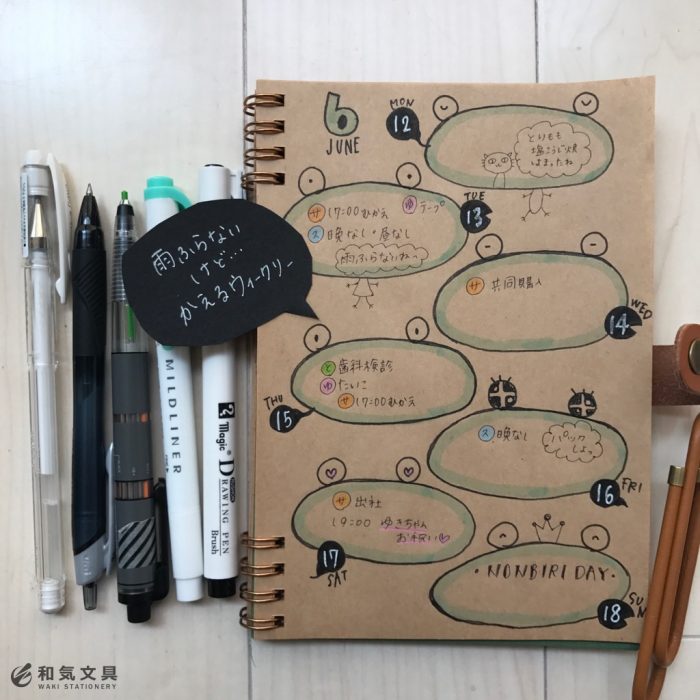 6
JUNE
MON
12
とりもも
塩こうじ焼
しまったね
TUE
13
サ 17:00むかえ
ゆ テープ
ス 晩なし・昼なし
雨ふらないねー
サ 共同購入
WED
14
と 歯科検診
ゆ たいこ
サ 17:00むかえ
THU
15
ス 晩なし
パック
しよっ
16
FRI
サ 出社
19:00 ゆきちゃん
お祝い
17
SAT
・NONBIRI DAY・
18
SUN
雨ふらない
けど…
かえるウィークリー
MILDLINER
Magic
DRAWING PEN
Brush
和気文具
WAKI STATIONERY